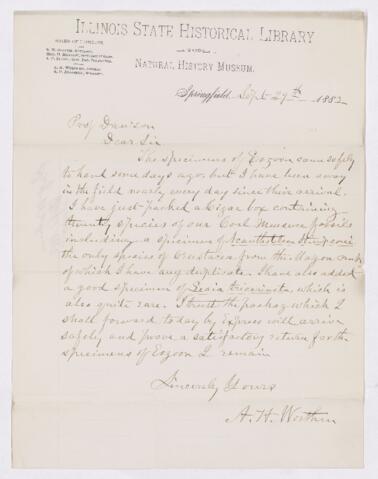 ILLINOIS STATE HISTORICAL LIBRARY
AND
NATURAL HISTORY MUSEUM.
Springfield, Sept 29th 1882
Prof Dawson
Dear Sir
The specimens of Eozoon came safely
to hand some days ago, but I have been away
in the field nearly every day since their arrival.
I have just packed a cigar box containing
twenty species of our Coal Measure fossils
including a specimen of
the only species of Crustacea from the Mazon creek
of which I have any duplicate. I have also added
a good specimen of Leaia tricarinata, which is
also quite rare. I trust the package which I
shall forward today by Express will arrive
safely and prove a satisfactory return for the
specimens of Eozoon I remain
Sincerely Yours
A. H. Worthen